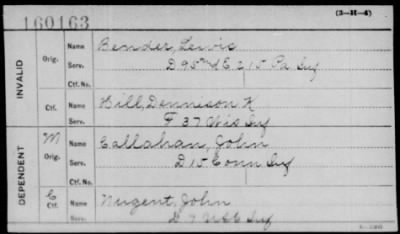 160163
(3-H-4)
INVALID
Orig. Name Bender, Lewis
Serv. D 95 nd E 215 Pa Inf
Ctf. No.
Ctf. Name Hill, Dennison K
Serv. F 37 Wis Inf
DEPENDENT
M Orig. Name Callahan, John
Serv. D 15 Conn Inf
Ctf. No.
C Ctf. Name Nugent, John
Serv. D 7 Inf